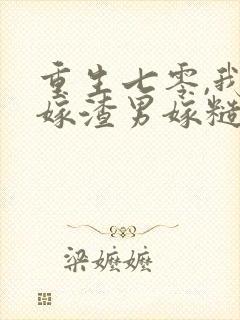 重生七零,我
嫁渣男嫁糙
梁嬷嬷